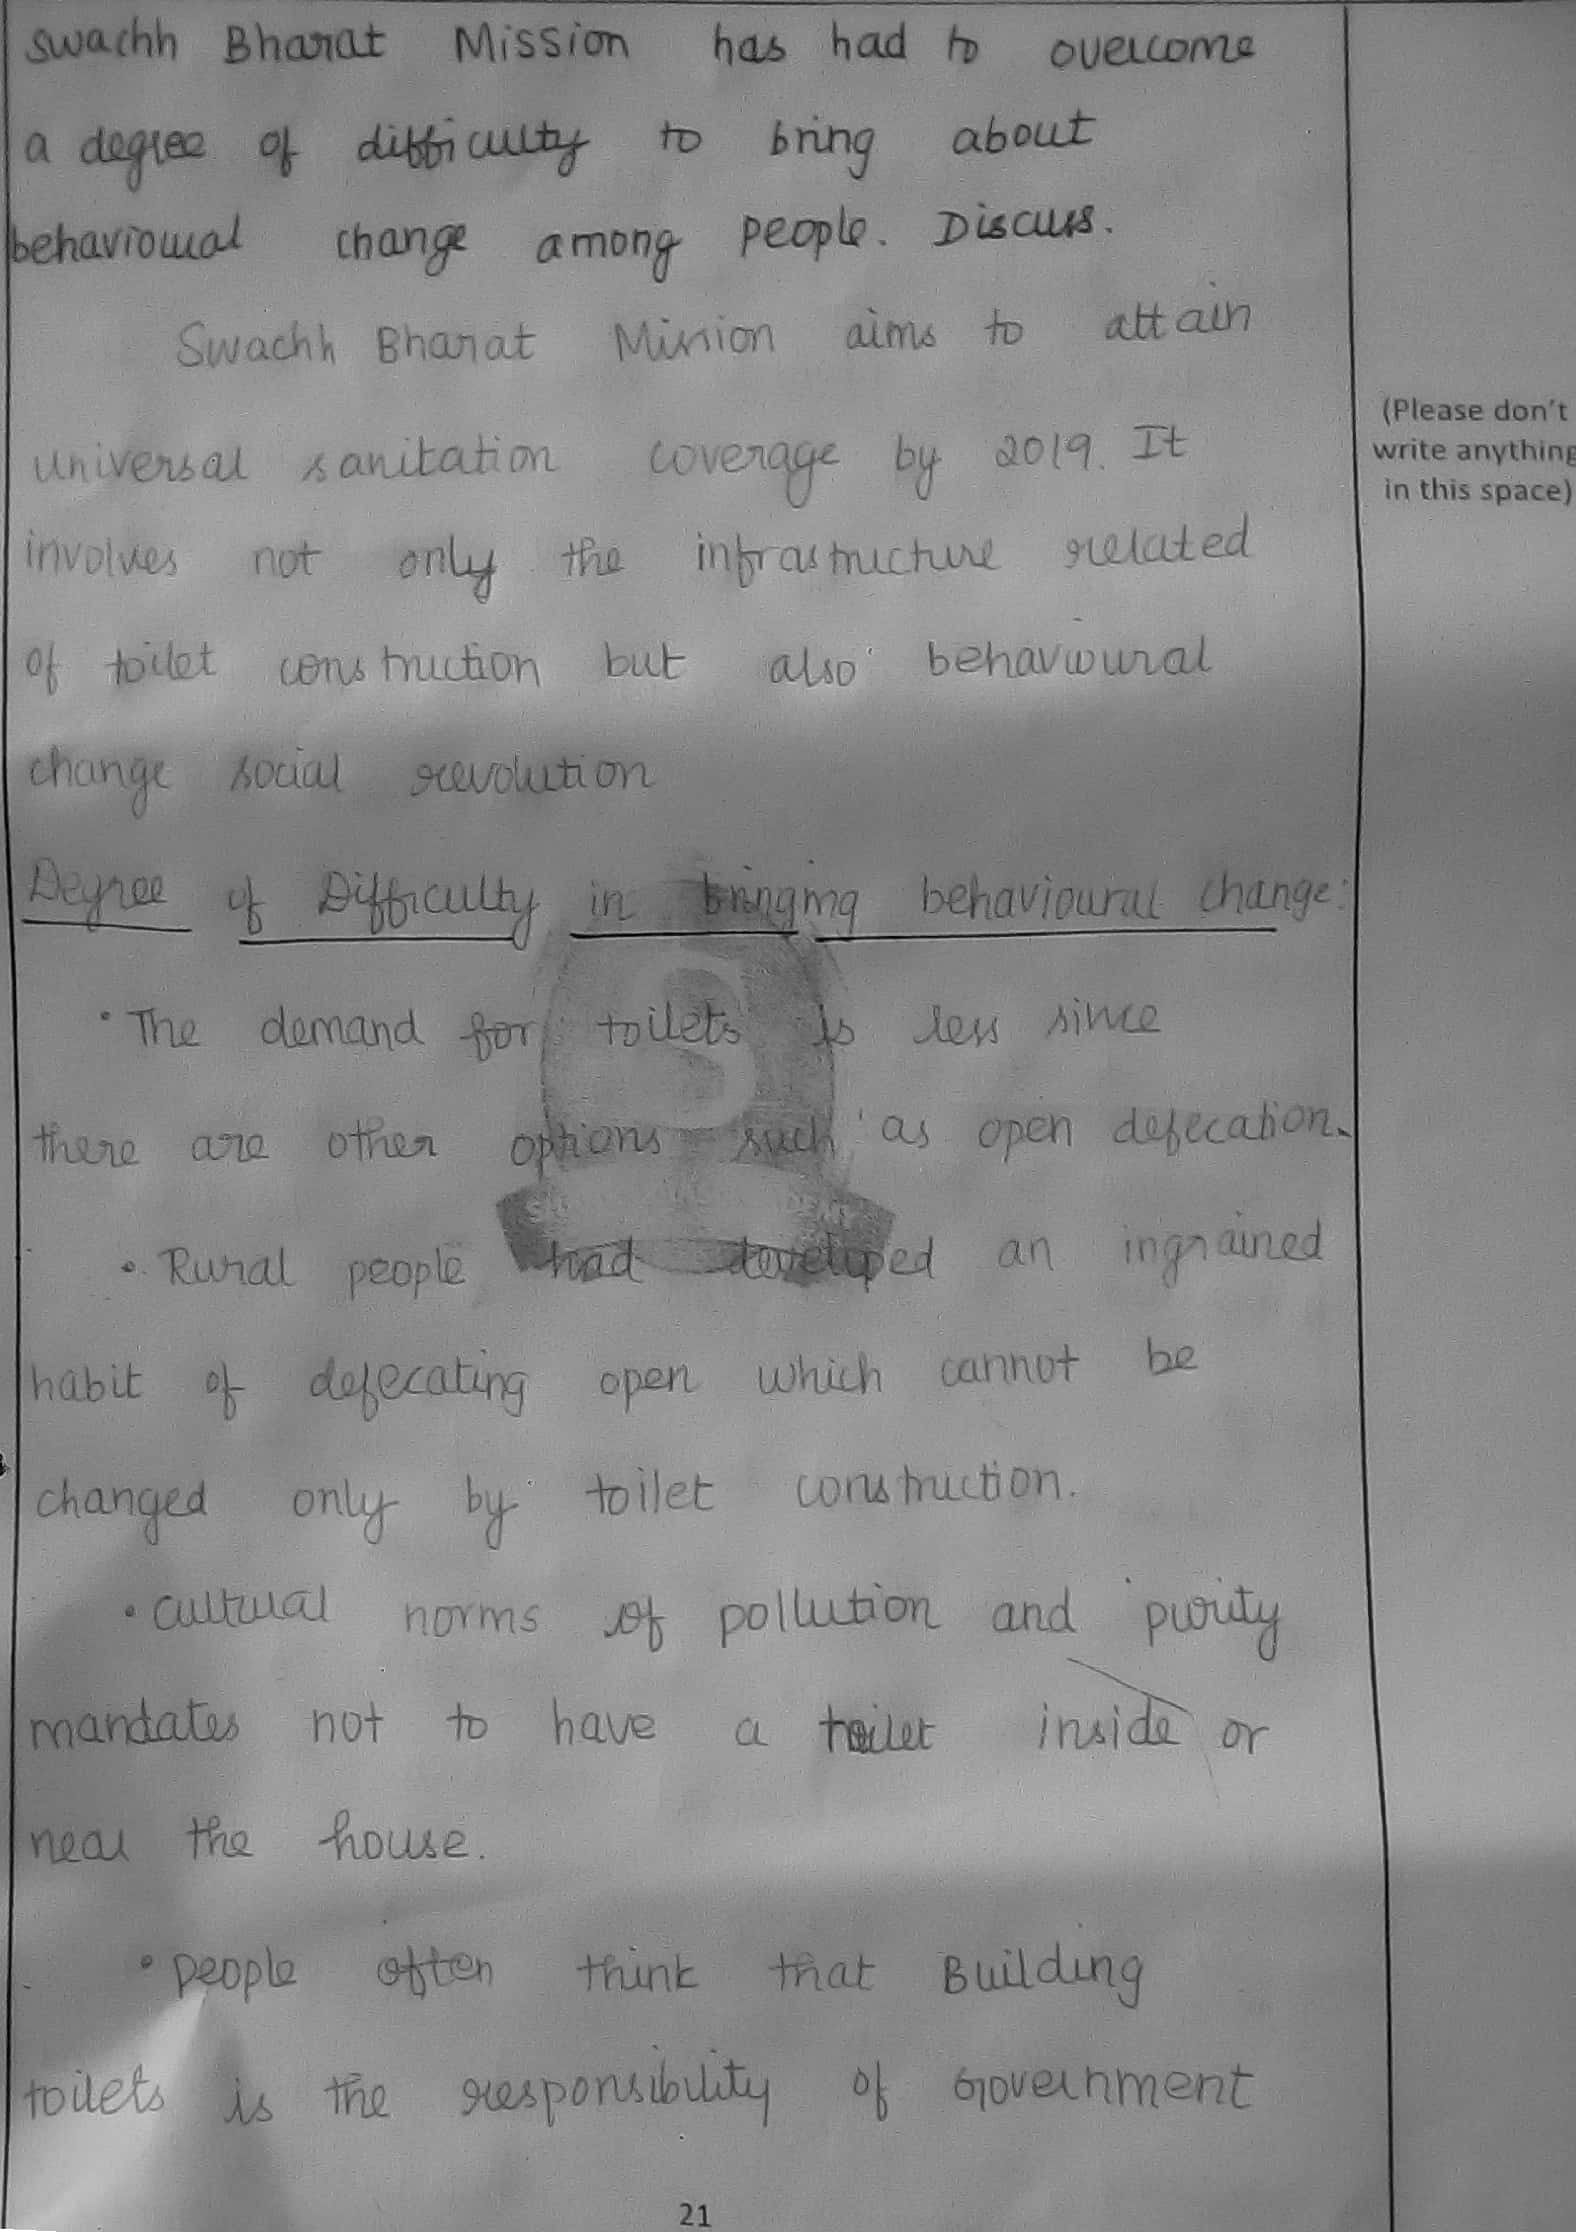 swachh Bharat Mission has had to overcome
a degree of difficulty to bring about
behavioural change among people. Discuss.
Swachh Bharat Mission aims to attain
universal sanitation coverage by 2019. It
involves not only the infrastructure related
of toilet construction but also behavioural
change social revolution
Degree of Difficulty in bringing behavioural change:
• The demand for toilets is less since
there are other options such as open defecation.
• Rural people had developed an ingrained
habit of defecating open which cannot be
changed only by toilet construction.
• cultural norms of pollution and purity
mandates not to have a toilet inside or
near the house.
• people often think that Building
toilets is the responsibility of Government
(Please don't
write anything
in this space)
21